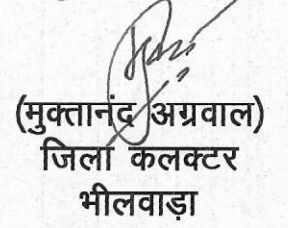 (मुक्तानंद अग्रवाल)
जिला कलक्टर
भीलवाड़ा